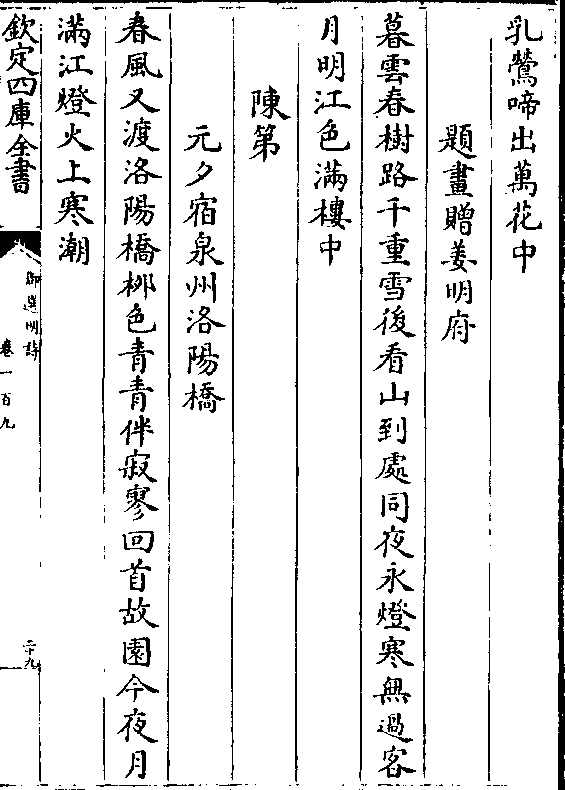 乳鶯啼出萬花中
題畫贈姜明府
暮雲春樹路千重雪後看山到處同夜永燈寒無過客
月明江色滿樓中
陳第
元夕宿泉州洛陽橋
春風又渡洛陽橋栁色青青伴寂寥回首故園今夜月
滿江燈火上寒潮
欽定四庫全書
御選明詩
卷一百九
二十九